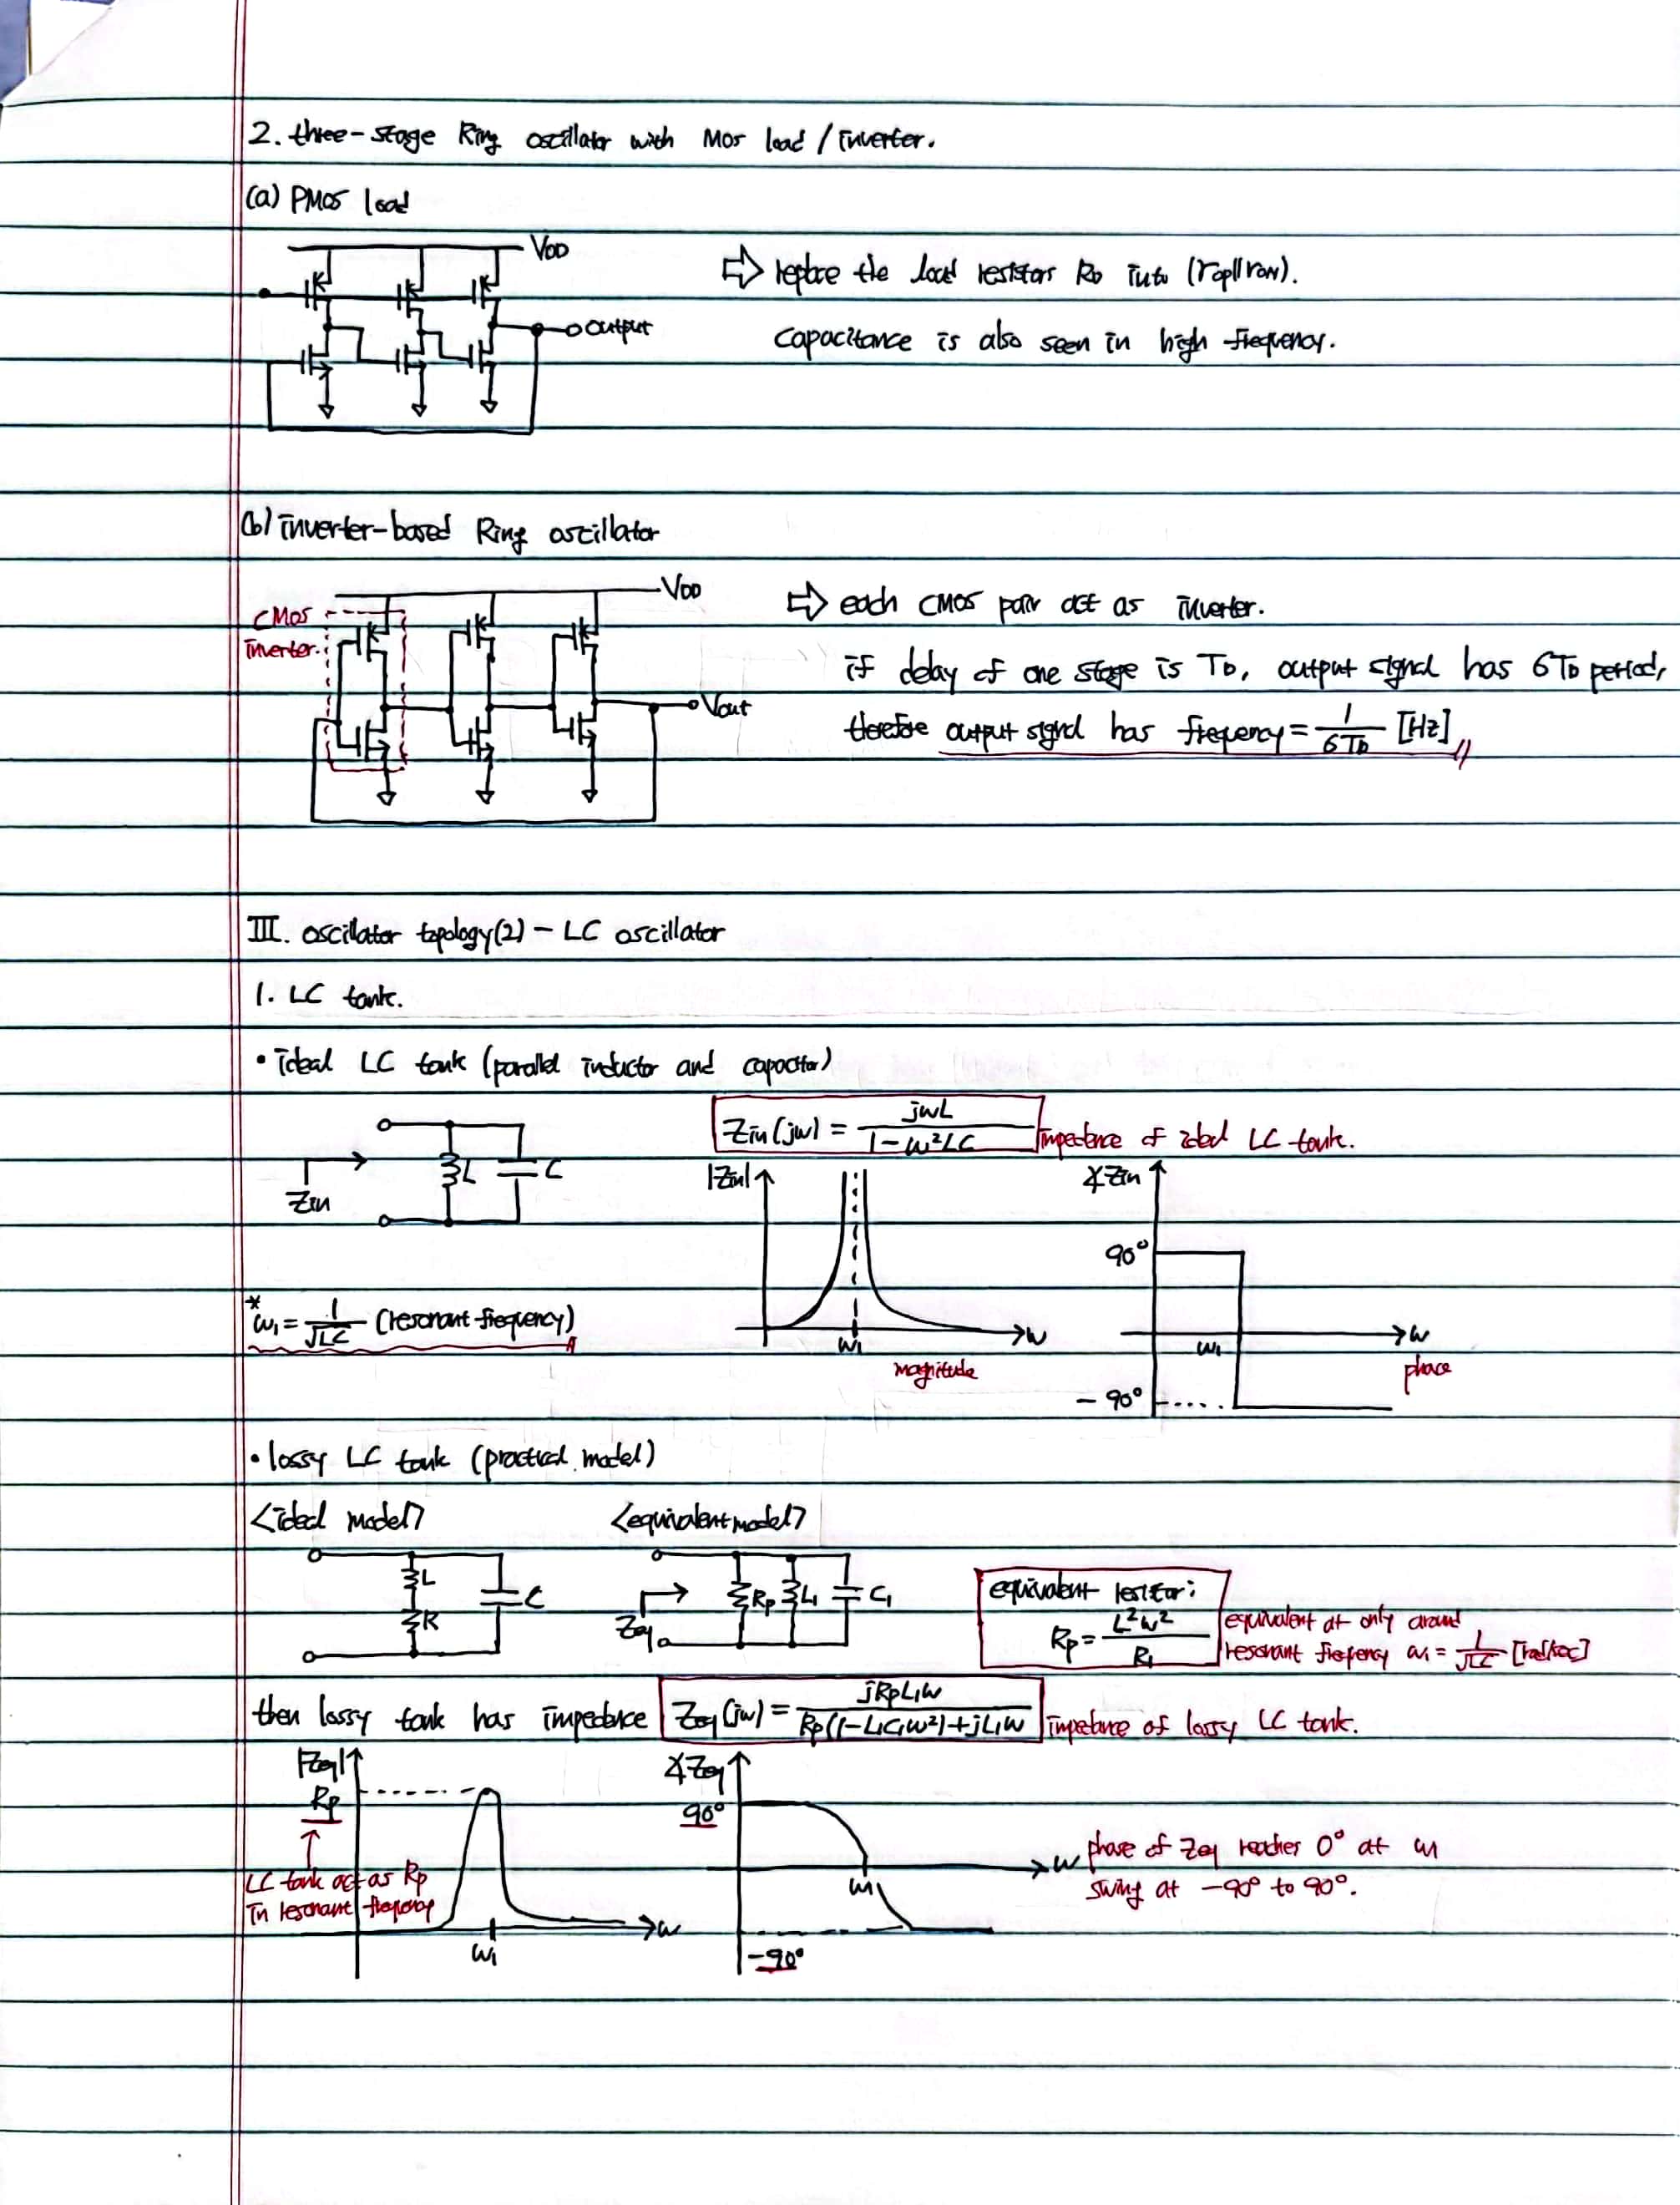 2. three-stage Ring oscillator with Mos load / inverter.
(a) PMOS load
VDD
output
⇨ replace the load resistors RD into (rop||ron).
capacitance is also seen in high frequency.
(b) inverter-based Ring oscillator
CMOS
inverter.
VDD
Vout
⇨ each CMOS pair act as inverter.
if delay of one stage is TD, output signal has 6TD period,
therefore output signal has frequency = 1/6TD [Hz]
III. oscillator topology(2) - LC oscillator
1. LC tank.
• ideal LC tank (parallel inductor and capacitor)
Zin(jw) = jwL / 1-w²LC
impedance of ideal LC tank.
Zin
L
C
|Zin|
w1
w
magnitude
∡Zin
90°
-90°
w1
w
phase
* w1 = 1/√LC (resonant frequency)
• lossy LC tank (practical model)
<ideal model>
<equivalent model>
L
R
C
Zeq
Rp
L1
C1
equivalent resistor:
Rp = L²w² / R1
equivalent at only around
resonant frequency w1 = 1/√LC [rad/sec]
then lossy tank has impedance
Zeq(jw) = jRpL1w / Rp(1-L1C1w²)+jL1w
impedance of lossy LC tank.
|Zeq|
Rp
LC tank act as Rp
In resonant frequency
w1
w
∡Zeq
90°
-90°
w1
w
phase of Zeq reaches 0° at w1
swing at -90° to 90°.